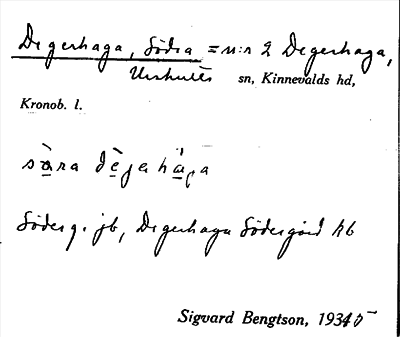 Degerhaga, Södra = n:r 2 Degerhaga,
Urshults sn, Kinnevalds hd,
Kronob. l.
sàra dèjahàga
Söderg. jb, Degerhaga Södergård kb
Sigvard Bengtson, 1935